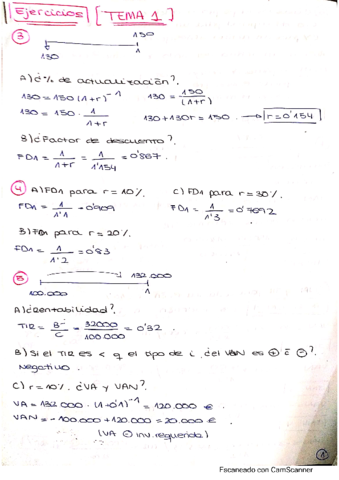 Ejercicios [TEMA 1]
③ 150
130 1
A) ¿% de actualización?
130 = 150 (1+r)⁻¹ 130 = 150/(1+r)
130 = 150 · 1/(1+r) 130 + 130r = 150 → r = 0'154
B) ¿Factor de descuento?
FD1 = 1/(1+r) = 1/1'154 = 0'867
④ A) FD1 para r = 10% C) FD1 para r = 30%
FD1 = 1/1'1 = 0'909 FD1 = 1/1'3 = 0'7692
B) FD1 para r = 20%
FD1 = 1/1'2 = 0'83
⑤ 132.000
100.000 1
A) ¿rentabilidad?
TIR = B/C = 32000/100.000 = 0'32
B) Si el TIR es < q el tipo de i ¿el VAN es ⊕ o ⊖?
Negativo.
C) r = 10% ¿VA y VAN?
VA = 132.000 · (1+0'1)⁻¹ = 120.000 €
VAN = -100.000 + 120.000 = 20.000 €
(VA ⊖ inv. requerida)
1
Escaneado con CamScanner